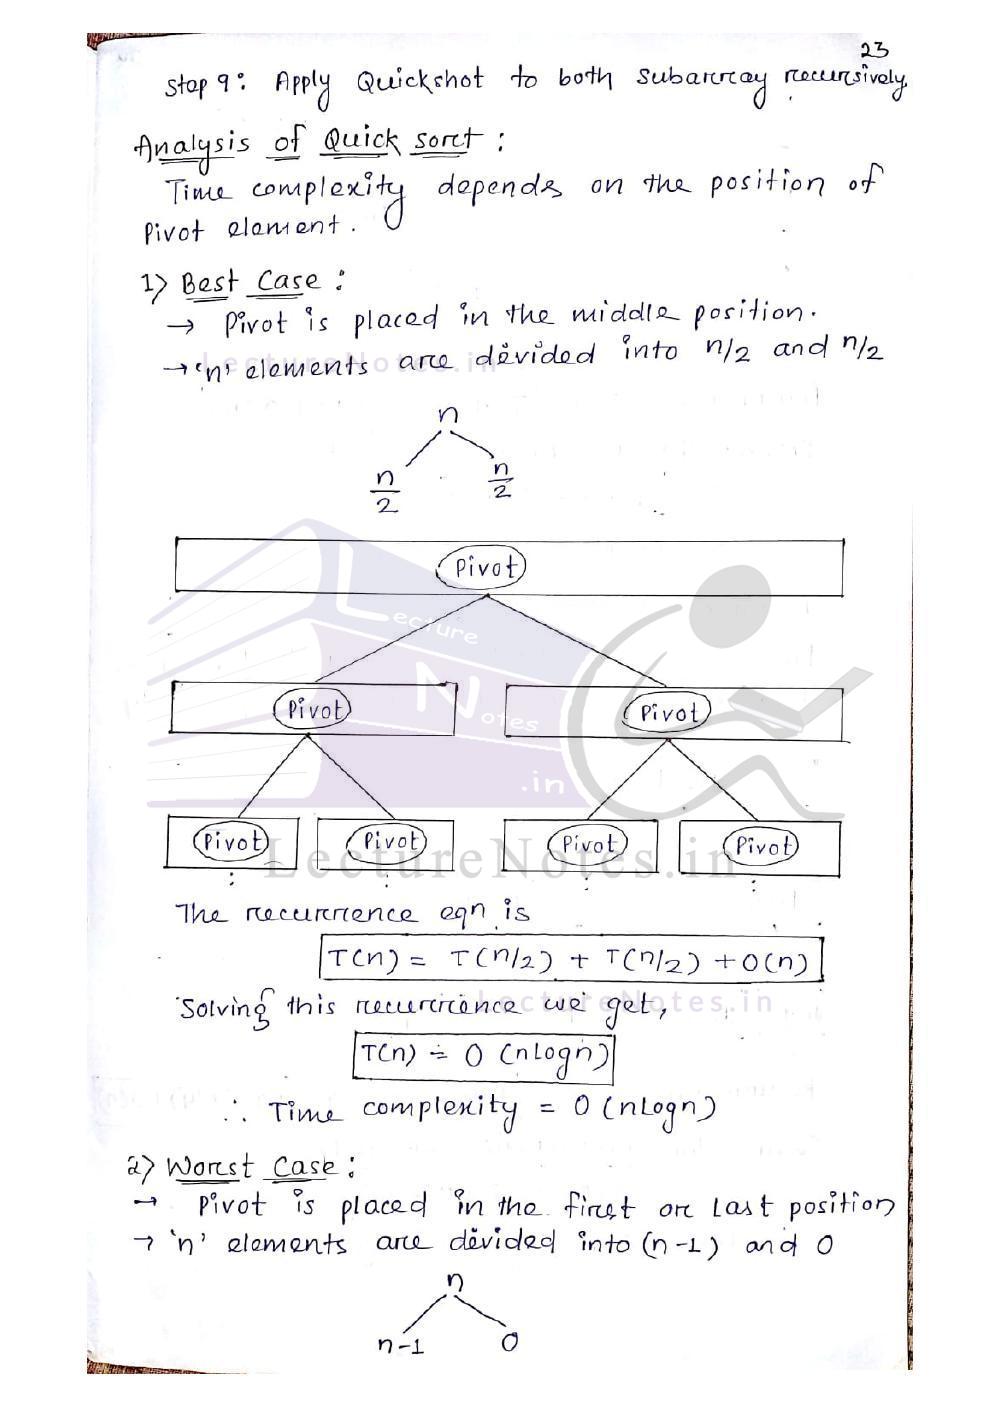 23
Step 9: Apply Quickshot to both subarray recursively
Analysis of Quick sort :
Time complexity depends on the position of
Pivot element .
1) Best Case :
→ Pivot is placed in the middle position.
→ 'n' elements are divided into n/2 and n/2
LectureNotes.in
n
n/2 n/2
Pivot
Lecture
Pivot Pivot
Notes
.in
Pivot Pivot Pivot Pivot
LectureNotes.in
: : : :
The recurrence eqn is
T(n) = T(n/2) + T(n/2) + O(n)
Solving this recurrence we get,
LectureNotes.in
T(n) = O (nLogn)
∴ Time complexity = O (nLogn)
2) Worst Case :
→ Pivot is placed in the first or Last position
→ 'n' elements are divided into (n-1) and 0
n
n-1 0